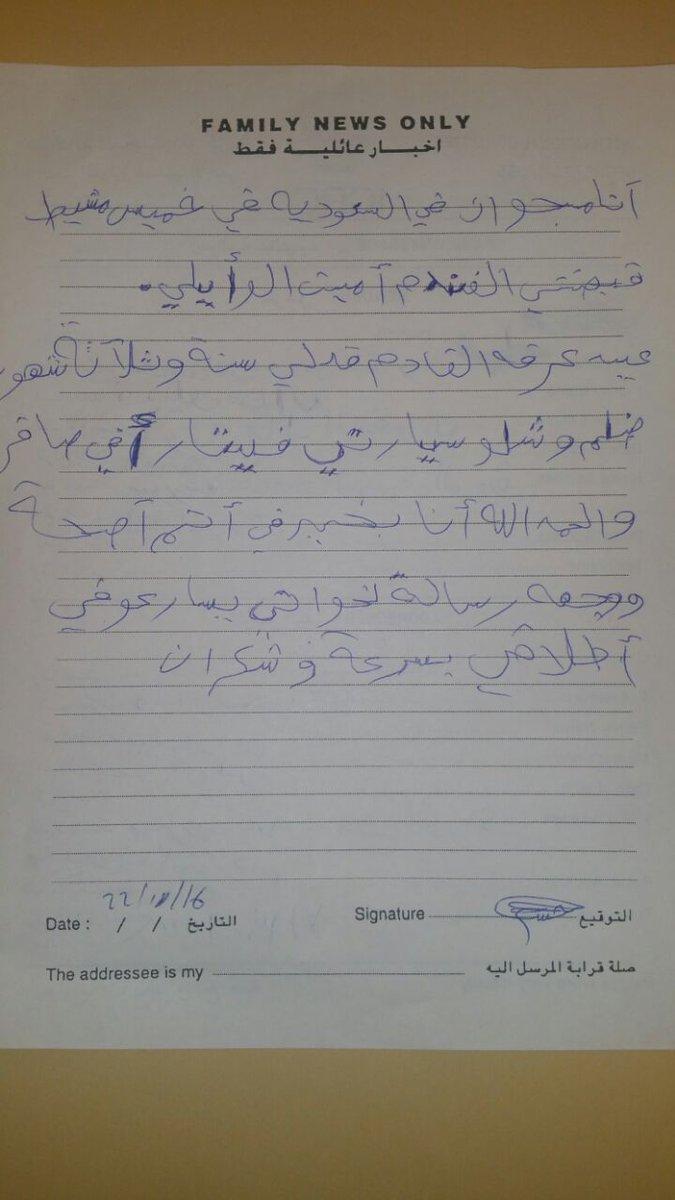 FAMILY NEWS ONLY
اخبار عائلية فقط
أنا مسجوان في السعوديه في خميس مشيط
قبضتي الفندم أميت الوأيلي.
عرقه القادم قدلي سنة وثلاثة شهور
ظلم وشلو سيارتي فيتار أفي صاقر
والحمد الله أنا بخير في أتم آصحة
ووجهه رسالة لخواتي يسارعو في
أطلاقي بسرعة وشكران
22/11/16
Date : / / التاريخ
Signature التوقيع
The addressee is my صلة قرابة المرسل اليه